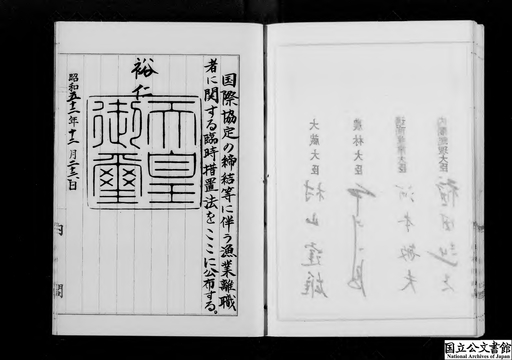 国際協定の締結等に伴う漁業離職
者に関する臨時措置法をここに公布する。
裕仁
天皇
御璽
昭和五十二年十二月二十六日
大蔵大臣
村山達雄
農林大臣
通商産業大臣
河本敏夫
内閣総理大臣
福田赳夫
国立公文書館
National Archives of Japan